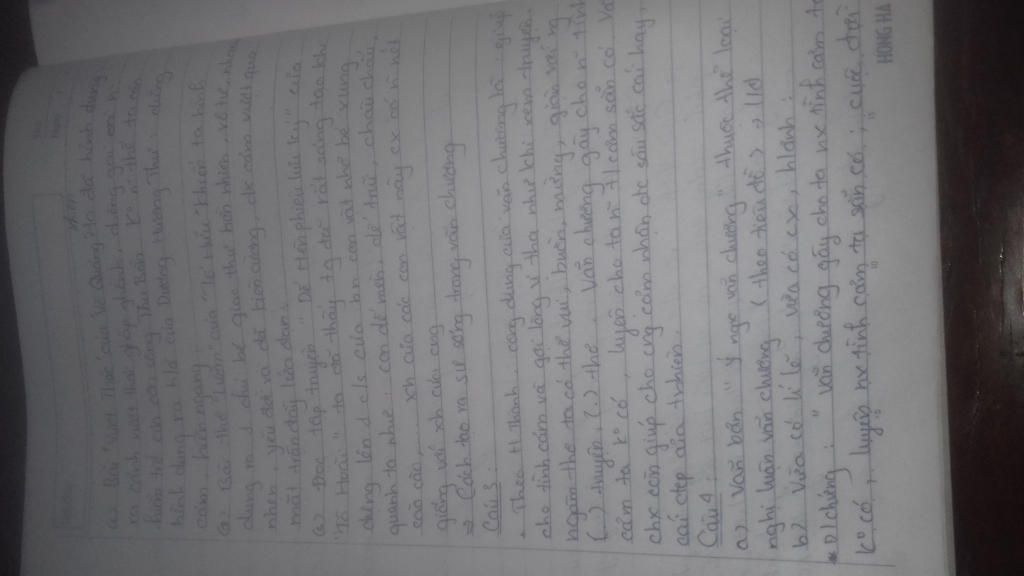 a) Bài "Vượt Thác" của Võ Quảng, ta dễ hình dung
ra cảnh vượt thác
hình dung ra của Dương Hương Thư dũng
cảm, hiên ngang.
a) Bài thơ "Lượm" của "Tố Hữu" khiến ta hình
dung ra 1 chú bé qua thơ hồn nhiên, vô tư, nhanh
nhẹn, yêu đời và dũng cảm vượt qua
mặt trận đầy lửa đạn.
a) Đọc tập truyện "Dế Mèn phiêu lưu ký" của
"Tô Hoài" ta có thấy tg đã rất sáng tạo khi
dựng lên 1 c/s của con vật nhỏ bé xung
quanh ta như: con dế mèn, dế trũi, châu chấu,
cào cào, xh của các con vật này cx có nét
giống với xh của con ng
=> Cách tạo ra sự sống trong văn chương
Câu 3:
• Theo H Thanh, công dụng của văn chương là: giúp
cho tình cảm và gợi lòng vị tha như khi xem truyện,
ngâm thơ ta có thể vui, buồn, mừng, giận với ng
(..) truyện, (..) thơ. Văn chương gây cho n~ tình
cảm ta k° có, luyện cho ta n~ t/cảm sẵn có. Văn
chx còn giúp cho cng cảm nhận đc sâu sắc cái hay,
cái đẹp của thiên
Câu 4:
a) Văn bản "Ý ngx văn chương" thuộc thể loại
nghị luận văn chương (theo tiêu đề)
b) Vừa có lí lẽ, vừa có cx, h/ảnh:
* D/chứng: "Văn chương gây cho ta nx tình cảm ta
k° có, luyện nx tình cảm ta sẵn có; cuộc đời
HONG HA